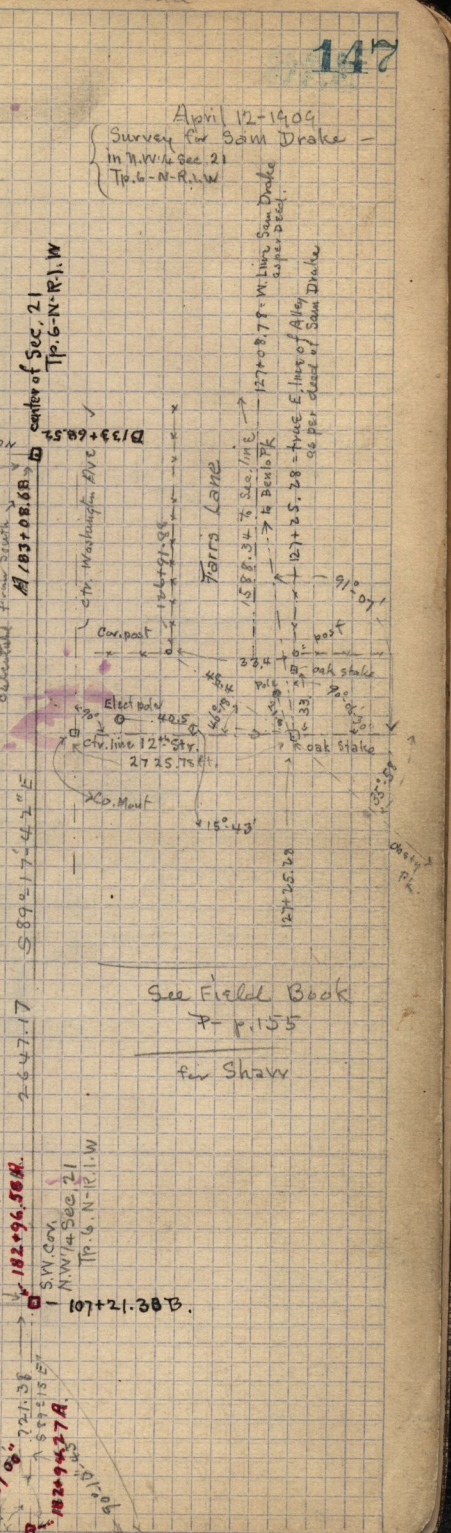 147
April 12-1909
Survey for Sam Drake -
in N.W.¼ Sec. 21
Tp. 6-N-R.1.W
center of Sec. 21
Tp. 6-N-R.1.W
D 133+68.52
A 183+08.6B
ctr. Washington Ave
Farrs Lane
1588.34 to Sec. line
127+08.78 = W. line Sam Drake
as per Deed.
127+25.28 = true E. line of Alley
as per deed of Sam Drake
91°
07'
Cor. post
post
33.4
oak stake
pole
Elect pole
40.5
33
Ctr. line 12th Str.
oak Stake
2725.78 ft.
Co. Mont
15°-43'
127+25.28
S 89°-17'-42" E
2647.17
See Field Book
P- p.155
for Shaw
182+96.58A.
S.W. Cor.
N.W.¼ Sec. 21
Tp. 6. N-R.1.W
107+21.38 B.
721.38
S 89°15' E
182+94.27A.
90°-10'-45"